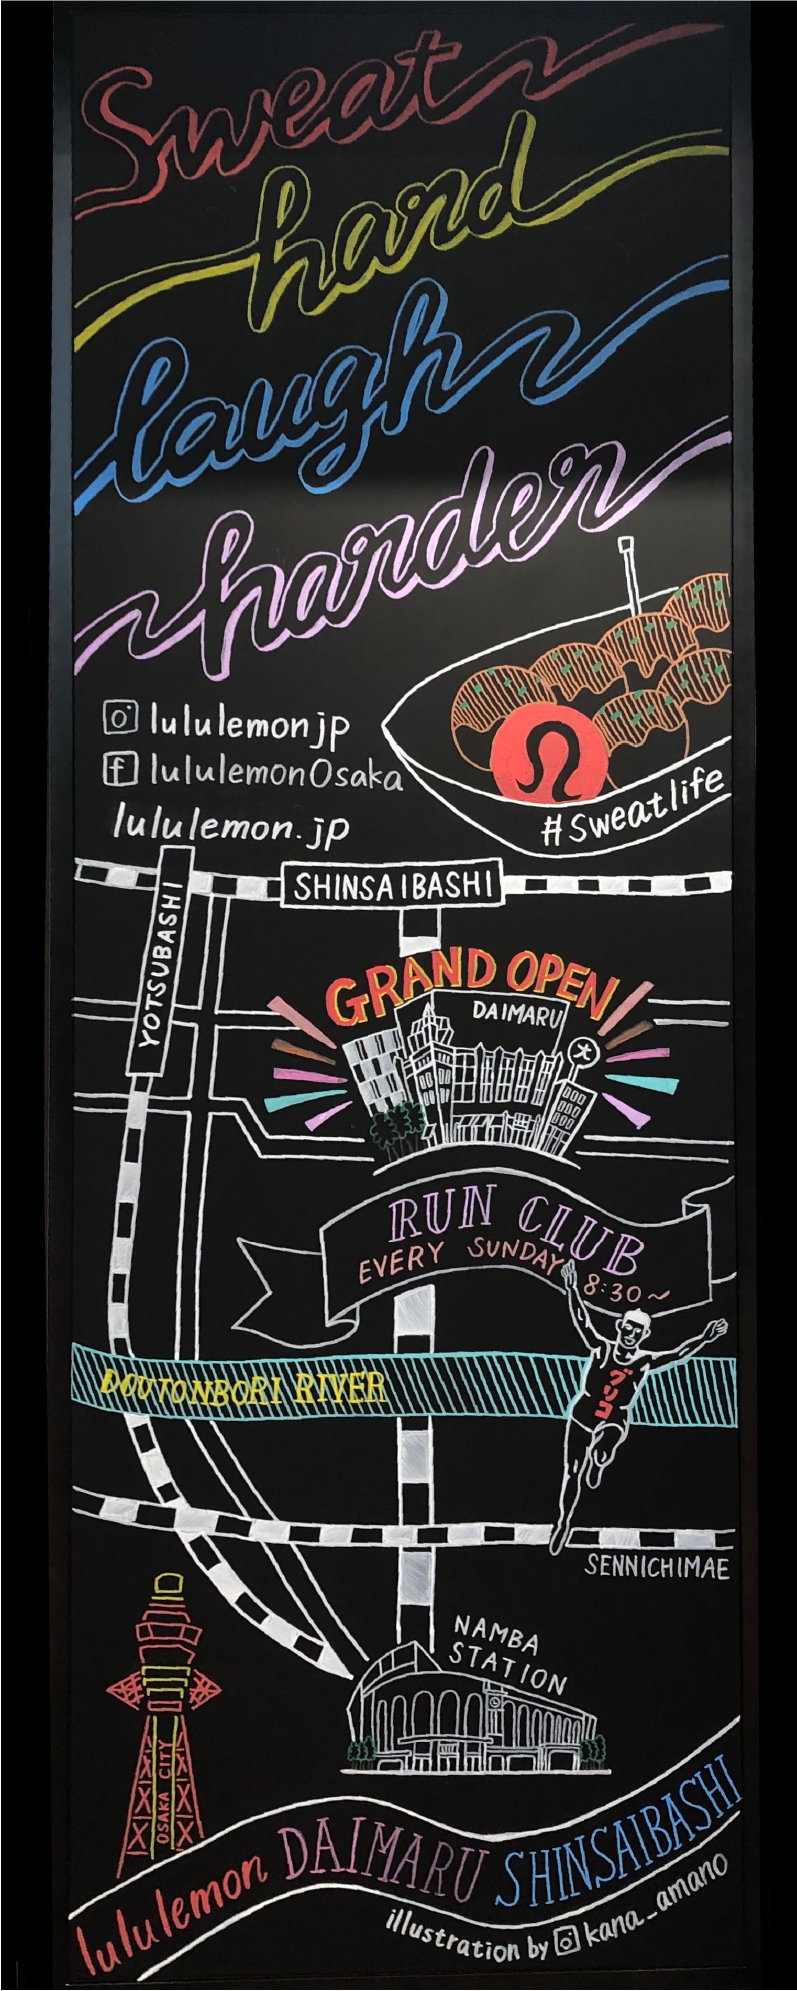 Sweat
hard
laugh
harder
lululemonjp
lululemonOsaka
lululemon.jp
#sweatlife
SHINSAIBASHI
YOTSUBASHI
GRAND OPEN
DAIMARU
大
RUN CLUB
EVERY SUNDAY 8:30~
DOUTONBORI RIVER
グリコ
SENNICHIMAE
NAMBA
STATION
OSAKA CITY
lululemon DAIMARU SHINSAIBASHI
illustration by kana_amano